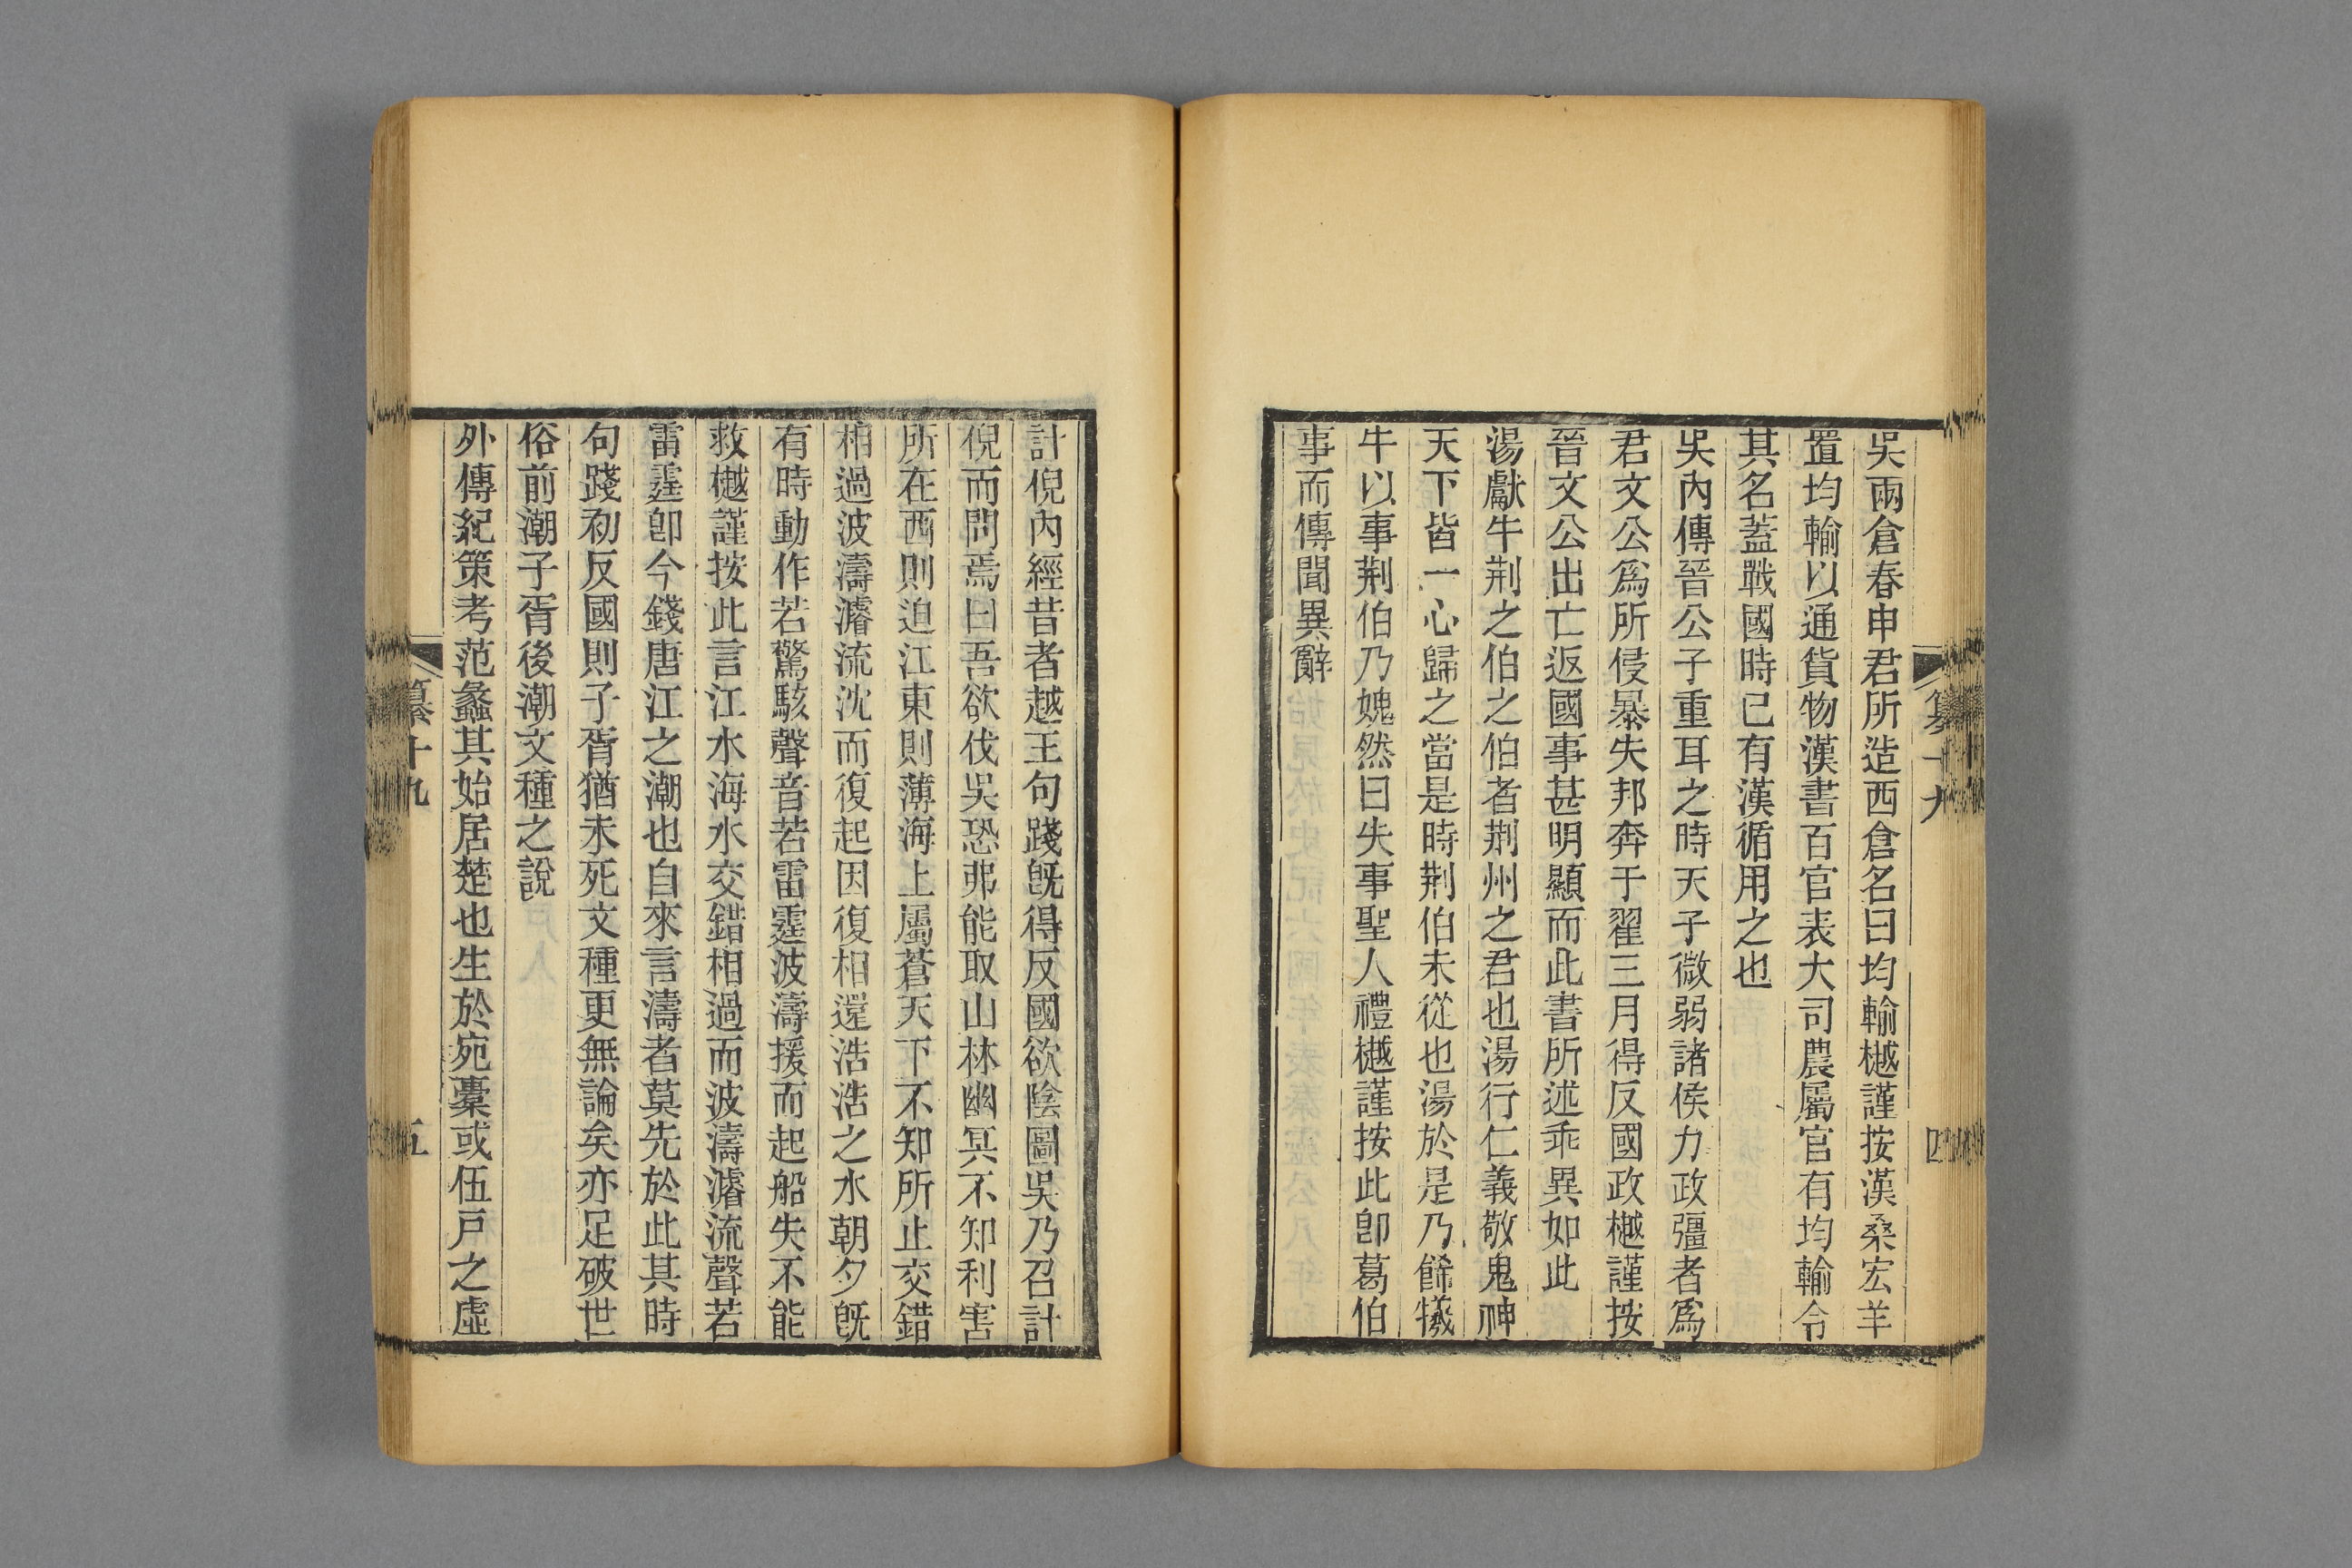 吳兩倉春申君所造西倉名曰均輸樾謹按漢桑宏羊
置均輸以通貨物漢書百官表大司農屬官有均輸令
其名蓋戰國時已有漢循用之也
吳內傳晉公子重耳之時天子微弱諸侯力政彊者爲
君文公爲所侵暴失邦奔于翟三月得反國政樾謹按
晉文公出亡返國事甚明顯而此書所述乖異如此
湯獻牛荆之伯之伯者荆州之君也湯行仁義敬鬼神
天下皆一心歸之當是時荆伯未從也湯於是乃飾犧
牛以事荆伯乃媿然曰失事聖人禮樾謹按此卽葛伯
事而傳聞異辭
纂十九
四
計倪內經昔者越王句踐旣得反國欲陰圖吳乃召計
倪而問焉曰吾欲伐吳恐弗能取山林幽冥不知利害
所在西則迫江東則薄海上屬蒼天下不知所止交錯
相過波濤濬流沈而復起因復相還浩浩之水朝夕旣
有時動作若驚駭聲音若雷霆波濤援而起船失不能
救樾謹按此言江水海水交錯相過而波濤濬流聲若
雷霆卽今錢唐江之潮也自來言濤者莫先於此其時
句踐初反國則子胥猶未死文種更無論矣亦足破世
俗前潮子胥後潮文種之說
外傳紀策考范蠡其始居楚也生於宛橐或伍戸之虛
纂十九
五